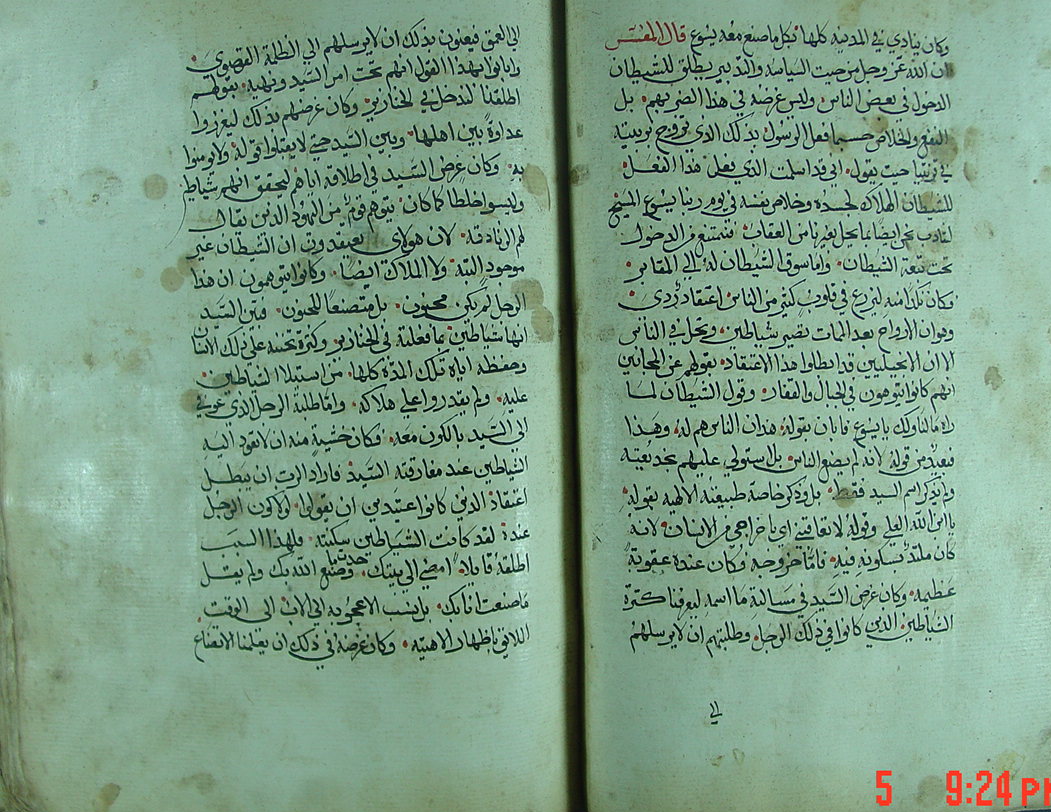 وكان ينادي في المدينة كلها بكل ما صنع معه يسوع قال المفسر
ان الله عز وجل من حيث السياسة والتدبير يطلق للشيطان
الدخول في بعض الناس وليس غرضه في هذا الضر بهم بل
النفع والخلاص حسبما فعل الرسول بذلك الذي تزوج بربيبته
في حيث يقول اني قد اسلمت الذي يعمل هذا الفعل
للشيطان لهلاك لجسده وخلاص نفسه في يوم ربنا يسوع المسيح
نحن ايضا بما يحل بغيرنا من العقاب فنمتنع من الدخول
تحت تبعة الشيطان واما سوق الشيطان له الى المقابر
فكان ذلك منه ليزرع في قلوب كثير من الناس اعتقاد ردي
وهو ان الارواح بعد الممات تصير شياطين وتحل في الناس
الا ان الانجيليين قد ابطلوا هذا الاعتقاد بقولهم عن المجانين
انهم كانوا يتوهون في الجبال والقفار وقول الشيطان لما
راه مالنا ولك يا يسوع فابان بقوله هذا ان الناس هم له وهذا
فبعيد من قوله لانه لم يصنع الناس بل استولى عليهم بخديعته
ولم يذكر اسم السيد فقط بل وذكر خاصة طبيعته الالهية بقوله
يا ابن الله العلي وقوله لا تعاقبني اي باخراجي من الانسان لانه
كان ملتذ بسكونه فيه فاما خروجه فكان عنده عقوبة
عظيمه وكان غرض السيد في مسالته ما اسمه ليعرفنا كثرة
الشياطين الذين كانوا في ذلك الرجل وطلبتهم ان لا يرسلهم
الى
الى العمق فيعنون بذلك ان لا يرسلهم الى الظلمة القصوى
وابانوا بهذا القول انهم تحت امر السيد ونهيه بقولهم
اطلقنا لندخل في الخنازير وكان غرضهم بذلك ليغرزوا
عداوة بين اهلها وبين السيد حتى لا يقبلوا قوله ولا يومنوا
به وكان غرض السيد في اطلاقه اياهم ليحقق انهم شياطين
وليسوا خلطا كما كان يتوهم قوم من اليهود الذين يقال
لهم الزنادقة لان هولاي يعتقدون ان الشيطان غير
موجود البته ولا الملاك ايضا وكانوا يتوهمون ان هذا
الرجل لم يكن مجنون بل متصنعا للجنون فبين السيد
انها شياطين بما فعلته في الخنازير وكثرة تحننه على ذلك الانسان
وحفظه اياه تلك المدة كلها من استيلا الشياطين
عليه ولم يقدروا على هلاكه واما طلبة الرجل الذي عوفي
الى السيد بالكون معه فكان خشية منه ان لا تعود اليه
الشياطين عند مفارقته السيد فاراد الرب ان يبطل
اعتقاد الذين كانوا عتيدين ان يقولوا لولا كون الرجل
عنده لقد كانت الشياطين سكنته فلهذا السبب
اطلقه قايلا امضي الى بيتك وحدث بما صنع الله بك ولم يقل
ما صنعت انا بك بل نسب الاعجوبه الى الاب الى الوقت
اللايق باظهار الاهيته وكان غرضه في ذلك ان يعلمنا الاتضاع
5 9:24 PM